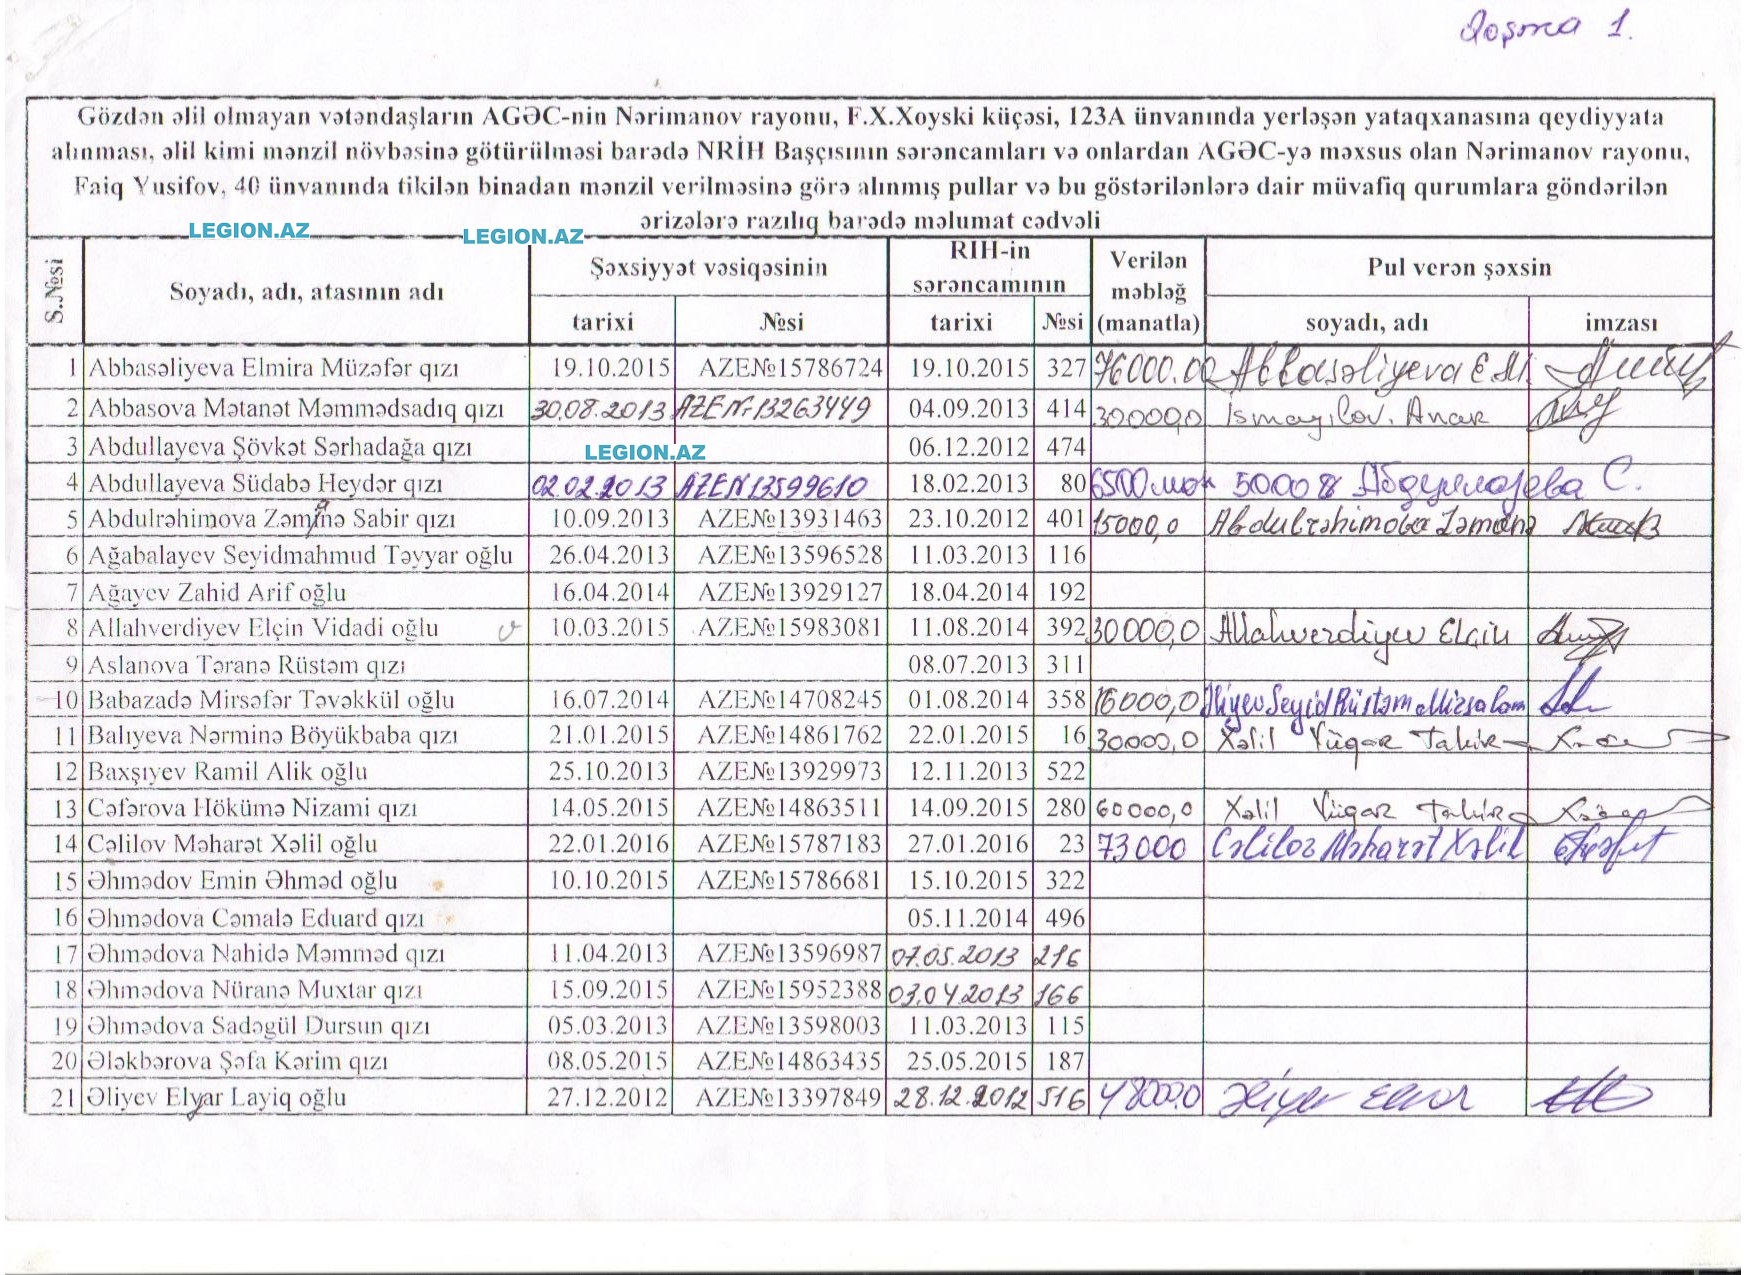 Qoşma 1.
Gözdən əlil olmayan vətəndaşların AGƏC-nin Nərimanov rayonu, F.X.Xoyski küçəsi, 123A ünvanında yerləşən yataqxanasına qeydiyyata
alınması, əlil kimi mənzil növbəsinə götürülməsi barədə NRİH Başçısının sərəncamları və onlardan AGƏC-yə məxsus olan Nərimanov rayonu,
Faiq Yusifov, 40 ünvanında tikilən binadan mənzil verilməsinə görə alınmış pullar və bu göstərilənlərə dair müvafiq qurumlara göndərilən
ərizələrə razılıq barədə məlumat cədvəli
LEGION.AZ LEGION.AZ
S.№si Soyadı, adı, atasının adı Şəxsiyyət vəsiqəsinin RIH-in sərəncamının Verilən məbləğ (manatla) Pul verən şəxsin
tarixi №si tarixi №si soyadı, adı imzası
1 Abbasəliyeva Elmira Müzəfər qızı 19.10.2015 AZE№15786724 19.10.2015 327 76000.00 Abbasəliyeva E.M.
2 Abbasova Mətanət Məmmədsadıq qızı 30.08.2013 AZE№13263449 04.09.2013 414 30000,0 İsmayılov. Anar
3 Abdullayeva Şövkət Sərhadağa qızı LEGION.AZ 06.12.2012 474
4 Abdullayeva Südabə Heydər qızı 02.02.2013 AZEN13599610 18.02.2013 80 6500 5000 С.
5 Abdulrəhimova Zəminə Sabir qızı 10.09.2013 AZE№13931463 23.10.2012 401 15000,0 Abdulrəhimova Zəmanə
6 Ağabalayev Seyidmahmud Təyyar oğlu 26.04.2013 AZE№13596528 11.03.2013 116
7 Ağayev Zahid Arif oğlu 16.04.2014 AZE№13929127 18.04.2014 192
8 Allahverdiyev Elçin Vidadi oğlu 10.03.2015 AZE№15983081 11.08.2014 392 30000,0 Allahverdiyev Elçin
9 Aslanova Təranə Rüstəm qızı 08.07.2013 311
10 Babazadə Mirsəfər Təvəkkül oğlu 16.07.2014 AZE№14708245 01.08.2014 358 16000,0 Əliyev Seyid Rüstəm Mirsalam
11 Balıyeva Nərminə Böyükbaba qızı 21.01.2015 AZE№14861762 22.01.2015 16 30000,0 Xəlil Vüqar Tahir
12 Baxşıyev Ramil Alik oğlu 25.10.2013 AZE№13929973 12.11.2013 522
13 Cəfərova Hökümə Nizami qızı 14.05.2015 AZE№14863511 14.09.2015 280 60000,0 Xəlil Vüqar Tahir
14 Cəlilov Məharət Xəlil oğlu 22.01.2016 AZE№15787183 27.01.2016 23 73000 Cəlilov Məharət Xəlil
15 Əhmədov Emin Əhməd oğlu 10.10.2015 AZE№15786681 15.10.2015 322
16 Əhmədova Cəmalə Eduard qızı 05.11.2014 496
17 Əhmədova Nahidə Məmməd qızı 11.04.2013 AZE№13596987 07.05.2013 216
18 Əhmədova Nüranə Muxtar qızı 15.09.2015 AZE№15952388 03.04.2013 166
19 Əhmədova Sadəgül Dursun qızı 05.03.2013 AZE№13598003 11.03.2013 115
20 Ələkbərova Şəfa Kərim qızı 08.05.2015 AZE№14863435 25.05.2015 187
21 Əliyev Elyar Layiq oğlu 27.12.2012 AZE№13397849 28.12.2012 516 48000.0 Əliyev